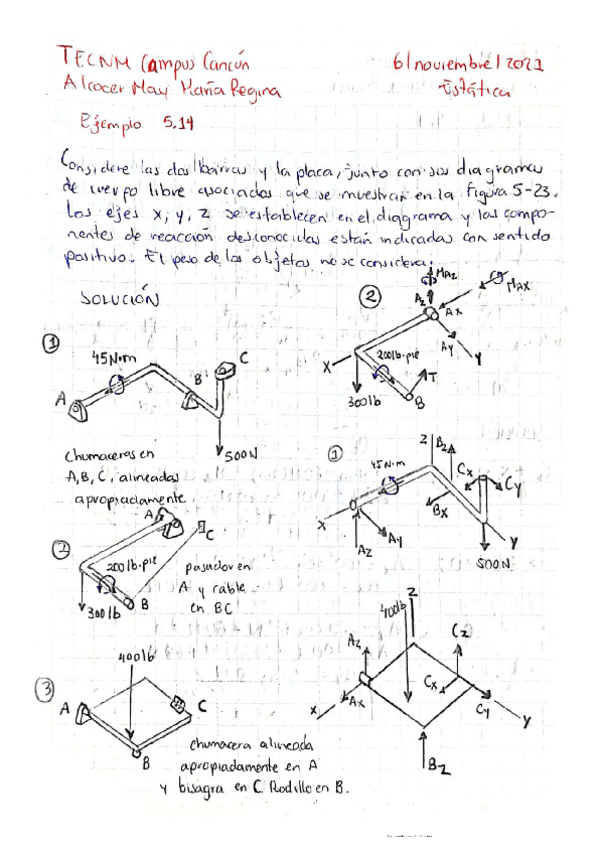 TECNM Campus Cancún
6/noviembre/2021
Alcocer May María Regina
Estática
Ejemplo 5.14
Considere las dos barras y la placa, junto con sus diagramas
de cuerpo libre asociados que se muestran en la Figura 5-23.
Los ejes x, y, z se establecen en el diagrama y las compo-
nentes de reacción desconocidas están indicadas con sentido
positivo. El peso de los objetos no se considera.
SOLUCIÓN
①
45 N·m
A
B
C
500N
Chumaceras en
A, B, C, alineadas
apropiadamente
②
MAz
Az
Ax
MAX
Ay
y
X
200lb·pie
T
300lb
B
①
45N·m
z
Bz
Cx
Cy
Bx
x
Az
Ay
y
500N
②
A
C
200lb·pie
B
300lb
pasador en
A y cable
en BC
③
400lb
A
C
B
chumacera alineada
apropiadamente en A
y bisagra en C. Rodillo en B.
400lb
z
Az
Cz
x
Ax
Cx
Cy
y
Bz